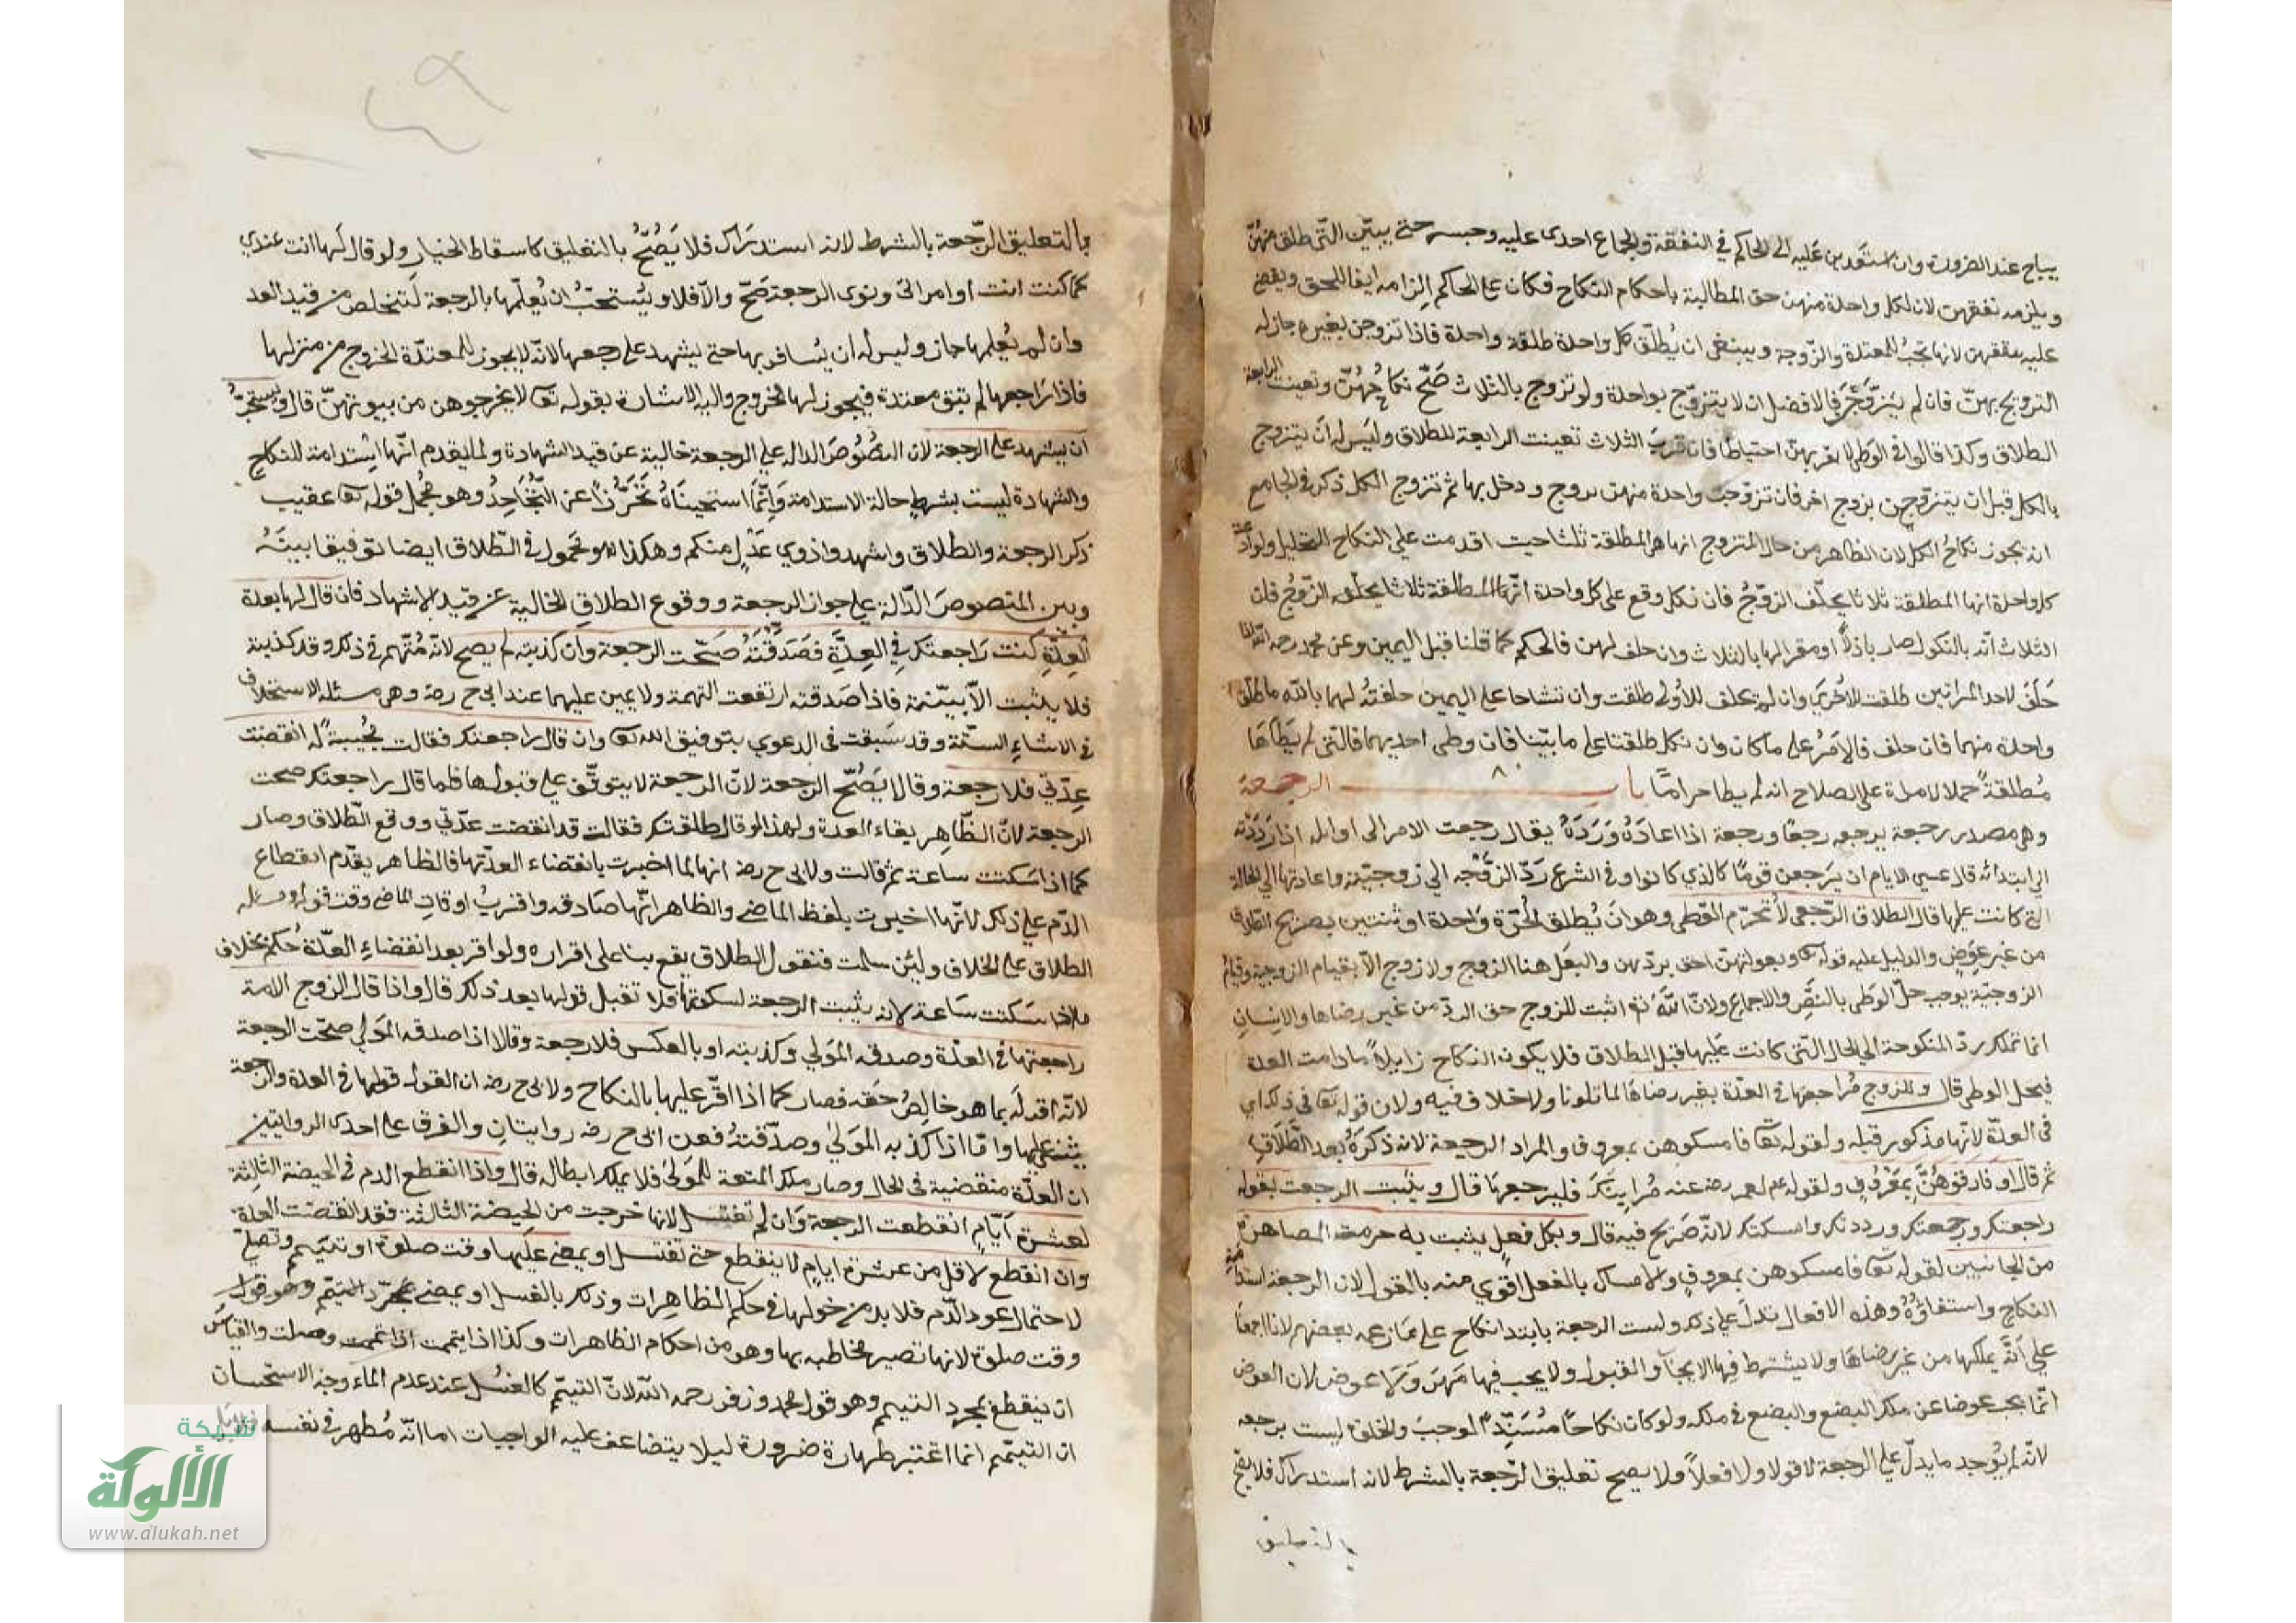 يباح عند الضرورة وان استعدين عليه الى الحاكم في النفقة والجماع احدى عليه وحبسه حتى يبيّن التي طلق منهنّ
ويلزمه نفقتهن لان لكل واحدة منهن حق المطالبة باحكام النكاح فكان على الحاكم الزامه ايفا الحق ويقضي
عليه بنفقتهن لانها تجب للمعتدة والزوجة وينبغي ان يُطلّق كل واحدة طلقة واحدة فاذا تزوجن بغيره جاز له
التزويج بهنّ فان لم يتزوّجن فالافضل ان لا يتزوّج بواحدة ولو تزوج بالثلاث صَحّ نكاحُهُنّ وتعينت الرابعة
الطلاق وكذا قالوا في الوطى لا يقربهنّ احتياطًا فان قربَ الثلاث تعينت الرابعة للطلاق وليس له ان يتزوج
بالكل قبل ان يتزوّجن بزوج اخر فان تزوجت واحدة منهن بزوج ودخل بها ثم تزوج الكل ذكر في الجامع
انه يجوز نكاحُ الكل لان الظاهر من حال المتزوج انها هي المطلقة ثلثا حيث اقدمت على النكاح التحليل ولو ادّعت
كل واحدة انها المطلقة ثلاثا يحلّف الزوجُ فان نكل وقع على كل واحدة
الثلاث لانه بالنكول صار باذلاً او مقرا لها بالثلاث وان حلف لهن فالحكم كما قلنا قبل اليمين وعن محمد رحمه الله اذا
حَلَفَ لاحد المراتين طلقت الاُخرى وان لم يحلف للاُولى طلقت وان تشاحا على اليمين حلفتُه لهما بالله ما طلق
واحدة منهما فان حلف فالاَمرُ على ما كان وان نكل طلقتا على ما بيّنا فان وطى احديهما فالتي لم يَطَأهَا
مُطلقةً حملا لامره على الصلاح انه لم يطا حرامًا باب الرجعة
وهي مصدر رجعه يرجعه رجعًا ورجعة اذا اعادَهُ وَرَدَهُ يقال رجعت الامر الى اوائله اذا رَدَدْته
الى ابتدائه قال عسى الايام ان يَرجعن قومًا كالذي كانوا وفي الشرع رَدّ الزوجة الى زوجيّته واعادتها الى الحالة
التي كانت عليها قال الطلاق الرّجعي لا تُحرّم الوطى وهو ان يُطلق الحُرّة واحدة او ثنتين بصريح الطلاق
من غير عِوَضٍ والدليل عليه قوله تع وبعولتهنّ احق بردّهن والبَعْل هنا الزوج ولا زوج الّا بقيام الزوجية وقيام
الزوجيّة يوجب حلّ الوَطى بالنصِّ والاجماع ولانّ اللهَ تع اثبت للزوج حق الردّ من غير رضاها والانسان
انما تملك ردّ المنكوحة الى الحال التي كانت عليها قبل الطلاق فلا يكون النكاح زايلاً مادامت العدة
فيحل الوطى قال وللزوج مُراجعتها في العدّة بغير رضاها لما تلونا ولا خلاف فيه ولان قوله تع في ذلك اي
في العدّة لانّها مذكور قبله ولقوله تع فامسكوهن بمعروف والمراد الرجعة لانه ذكرَهُ بعد الطَّلَاقِ
ثم قال او فارقوهُنَّ بِمَعْرُوفٍ ولقوله عم لعمر رضه عنه مُر ابنَكَ فليرجعها قال ويثبت الرجعت بقوله
راجعتك ورجعتك ورددتك وامسكتك لانّه صَريح فيه قال وبكل فعلٍ يثبت به حرمة المصاهرة
من الجانبين لقوله تع فامسكوهن بمعروفٍ والامساك بالفعل اقوي منه بالقول لان الرجعة استدامة
النكاح واستبقاؤهُ وهذه الافعال تدل على ذلك وليست الرجعة بابتدا نكاح على مَا زعمه بعضهم لانا اجمعنا
على اَنّه يملكها من غير رضاها ولا يشترط فيها الايجاب والقبول ولا يجب فيها مَهرٌ وَلا عوض لان العوض
انّما يجب عوضا عن ملك البضع والبضع في ملكه ولو كان نكاحًا مُبتدأً لوجب والخلوة ليست برجعه
لانّه لم يُوجد ما يدلّ على الرجعة لا قولا ولا فعلاً ولا يصح تعليق الرّجعة بالشرط لانه استدراك فلا يصح
بالتعليق
بالتعليق الرّجعة بالشرط لانه استدرَاك فلا يَصُحُّ بالتعليق كاسقاط الخيار ولو قال لها انت عندي
كما كنت انت او امراتى ونوى الرجعة صَحّ والّا فلا ويُستحبّ ان يُعلّمها بالرجعة لتتخلص من قيد العد
وان لم يُعلمها جاز وليس له ان يُسافر بها حتى يشهد على رجعتها لانّه لا يجوز للمعتدّة الخروج من منزلها
فاذا رَاجعها لم تبق معتدة فيجوز لها الخروج واليه الاشارة بقوله تع لا تخرجوهن من بيوتهنّ قال ويستحبّ
ان يشهد على الرجعة لان النصُوصَ الداله على الرجعة خالية عن قيد الشهادة ولما يقدم انّها استدامة للنكاح
والشهادة ليست بشرطٍ حالة الاستدامة وَانّما استحبنَاهُ تَحَرُّزاً عن التّجَاحِدُ وهو محمل قوله تع عقيب
ذكر الرجعة والطلاق واشهدوا ذوي عَدْلٍ منكم وهكذا هو محمول في الطّلاق ايضا توفيقا بينَهُ
وبين النصوصَ الدّالة على جواز الرجعة ووقوع الطلاق الخالية عن قيد الاشهاد فان قال لها بعدة
العدّةِ كنت رَاجعتك في العِدَّةِ فصَدَقَتَهُ صَحّت الرجعة وان كذبته لم يصح لانّه مُتّهم في ذلك وقد كذبته
فلا يثبت الّا ببيّنة فاذا صَدقته ارتفعت التهمة ولا يمين عليهما عند ابي ح رضه وهي مسئلة الاستحلاف
في الاشاءِ الستّة وقد سَبقت في الدعوي بتوفيق الله تع وان قال راجعتك فقالت مُجيبةً له انقضت
عِدّتي فلا رجعة وقالا يَصُحّ الرجعة لانّ الرجعة لا يتوقّف على قبولها فلما قال راجعتك صحت
الرجعة لانّ الظّاهِر بقاء العدة ولهذا لو قال طلقتك فقالت قد انقضت عدّتي ووقع الطّلاق وصار
كما اذا سَكتت ساعة ثم قالت ولابي ح رضه انها لما اخبرت بانقضاء العدّتها فالظاهر يقدّم انقطاع
الدّم على ذلك لانّها اخبرت بلفظ الماضي والظاهر انّها صَادقه واقربُ اوقاتِ الماضي وقت قوله ومسئله
الطلاق على الخلاف ولئن سلمت فنقول الطلاق يقع بنا على اقراره ولو اقر بعد انقضاءِ العدّة حُكم بخلاف
ما اذا سَكتت سَاعة لانه يثبت الرجعة لسكوتها فلا تقبل قولها بعد ذلك قال واذا قال الزوج الامة
راجعتها في العدّة وصدقه المَولي وكذبته او بالعكس فلا رجعة وقالا اذا صدقه المَولي صحّت الرجعة
لانّه اقر لَه بما هو خالِصُ حَقه فصار كما اذا اقرّ عليها بالنكاح ولابي ح رضه ان القول قولها في العدة والرجعة
يبتنى عليها وامّا اذا كذبه المَولى وصدّقتهُ فعن ابي ح رضه روايتانِ والفرق على احدى الروايتين
ان العدّة منقضية في الحال وصار ملك المتعة للمَولىٰ فلا يملك ابطاله قال واذا انقطع الدم في الحيضة الثالثة
لعشرة اَيّامٍ انقطعت الرجعة وَان لم تغتسل لانها خرجت من الحيضة الثالثة فقد انقضت العدة
وان انقطع لاقل من عشرة ايامٍ لا ينقطع حتى تغتسل او يمضي عليها وقت صلوة او تتيمم وتصلّي
لاحتمال عود الدّم فلا بد من دخولها في حكم الطاهِرات وذلك بالغسل او يمضي بمجرّد التيمّم وهو قول
وقت صلوة لانها تصير مخاطبه بها وهو من احكام الطاهرات وكذا اذا يتمت اذا تيممت وصلت والقياسُ
ان ينقطع بمجرد التيمم وهو قول محمد وزفر رحمه الله لانّ التيمّم كالغسْل عند عدم الماء وجه الاستحسان
ان التيمّم انما اعْتبر طهارة ضرورة ليلا يتضاعف عليه الواجبات اما انّه مُطهر في نفسه
شبكة
الألوكة
www.alukah.net